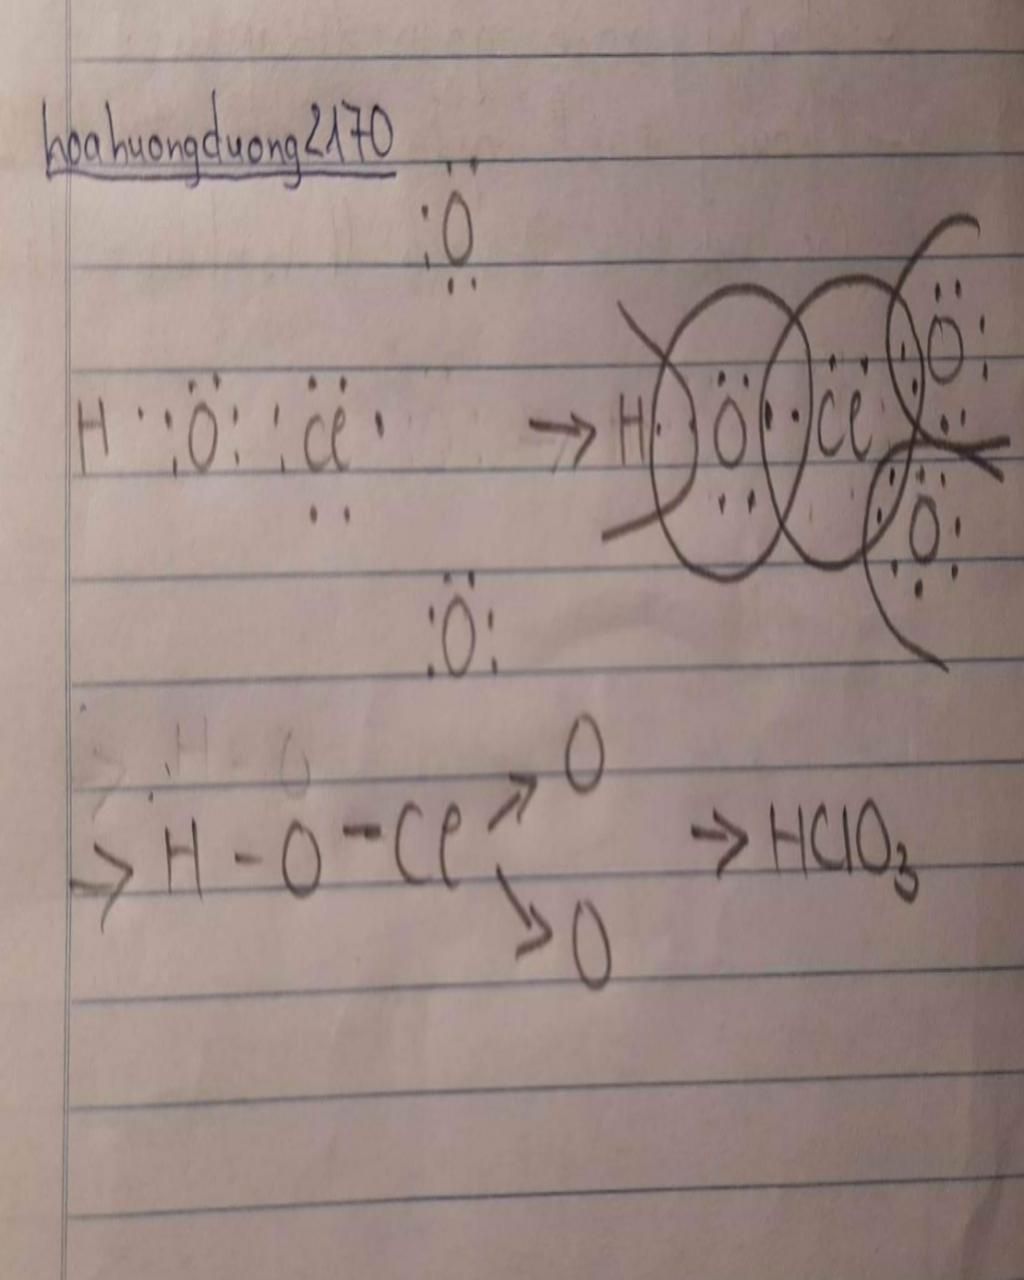 hoahuongduong2170
:Ö:
H · :Ö: :Cl · → H : O : Cl : O
O
:O:
H - O
→ H - O - Cl → O → HClO₃
→ O